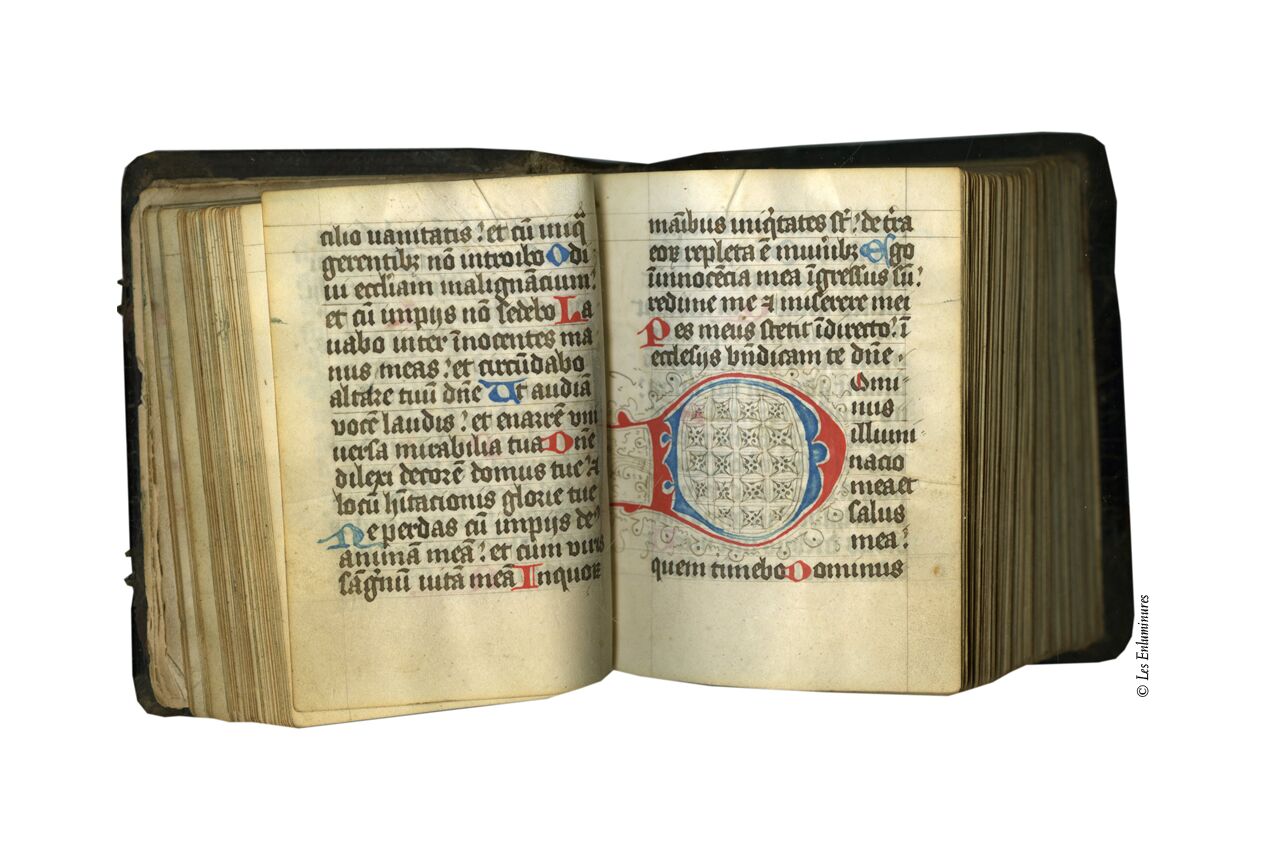 cilio vanitatis ? et cū iniq̄
gerentibꝫ nō introibo Odi
ui eccliam malignāciumː
et cū impijs nō sedebo La
uabo inter īnocentes ma
nus meas ː et circūdabo
altare tuū dn̄e Ut audiā
vocē laudis ? et enarrē vni
uersa mirabilia tua Dn̄e
dilexi decorē domus tue ? ⁊
locū hītacionis glorie tue
Ne perdas cū impijs deꝰ
animā meā ? et cum viris
sāgnū uitā meā In quoꝝ
māibus iniq̇tates sꝭ ? dext̄ra
eoꝝ repleta ē mun̄ibꝫ Ego
ī innocēcia mea īgressus sū ?
redime me ⁊ miserere mei
Pes meus stetit ī directo ? ī
ecclesijs bn̄dicam te dn̄e .
Domi
nus
illumi
nacio
mea et
salus
mea ?
quem timebo Dominus
© Les Enluminures